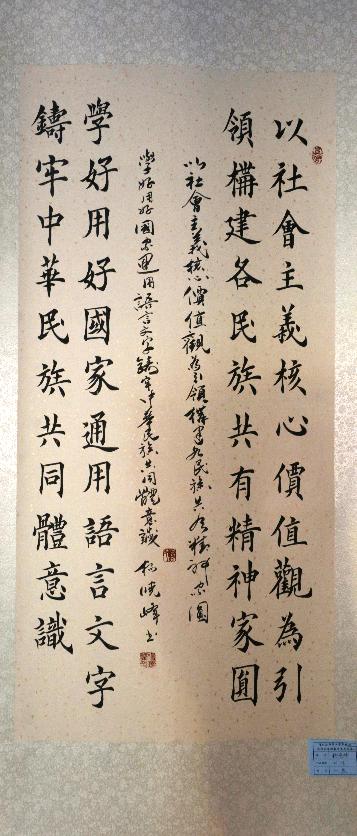 以社會主義核心價值觀為引
領構建各民族共有精神家園
以社會主義核心價值觀為引領構建各民族共有精神家園
學好用好國家通用語言文字鑄牢中華民族共同體意識
曉峰书
學好用好國家通用語言文字
鑄牢中華民族共同體意識